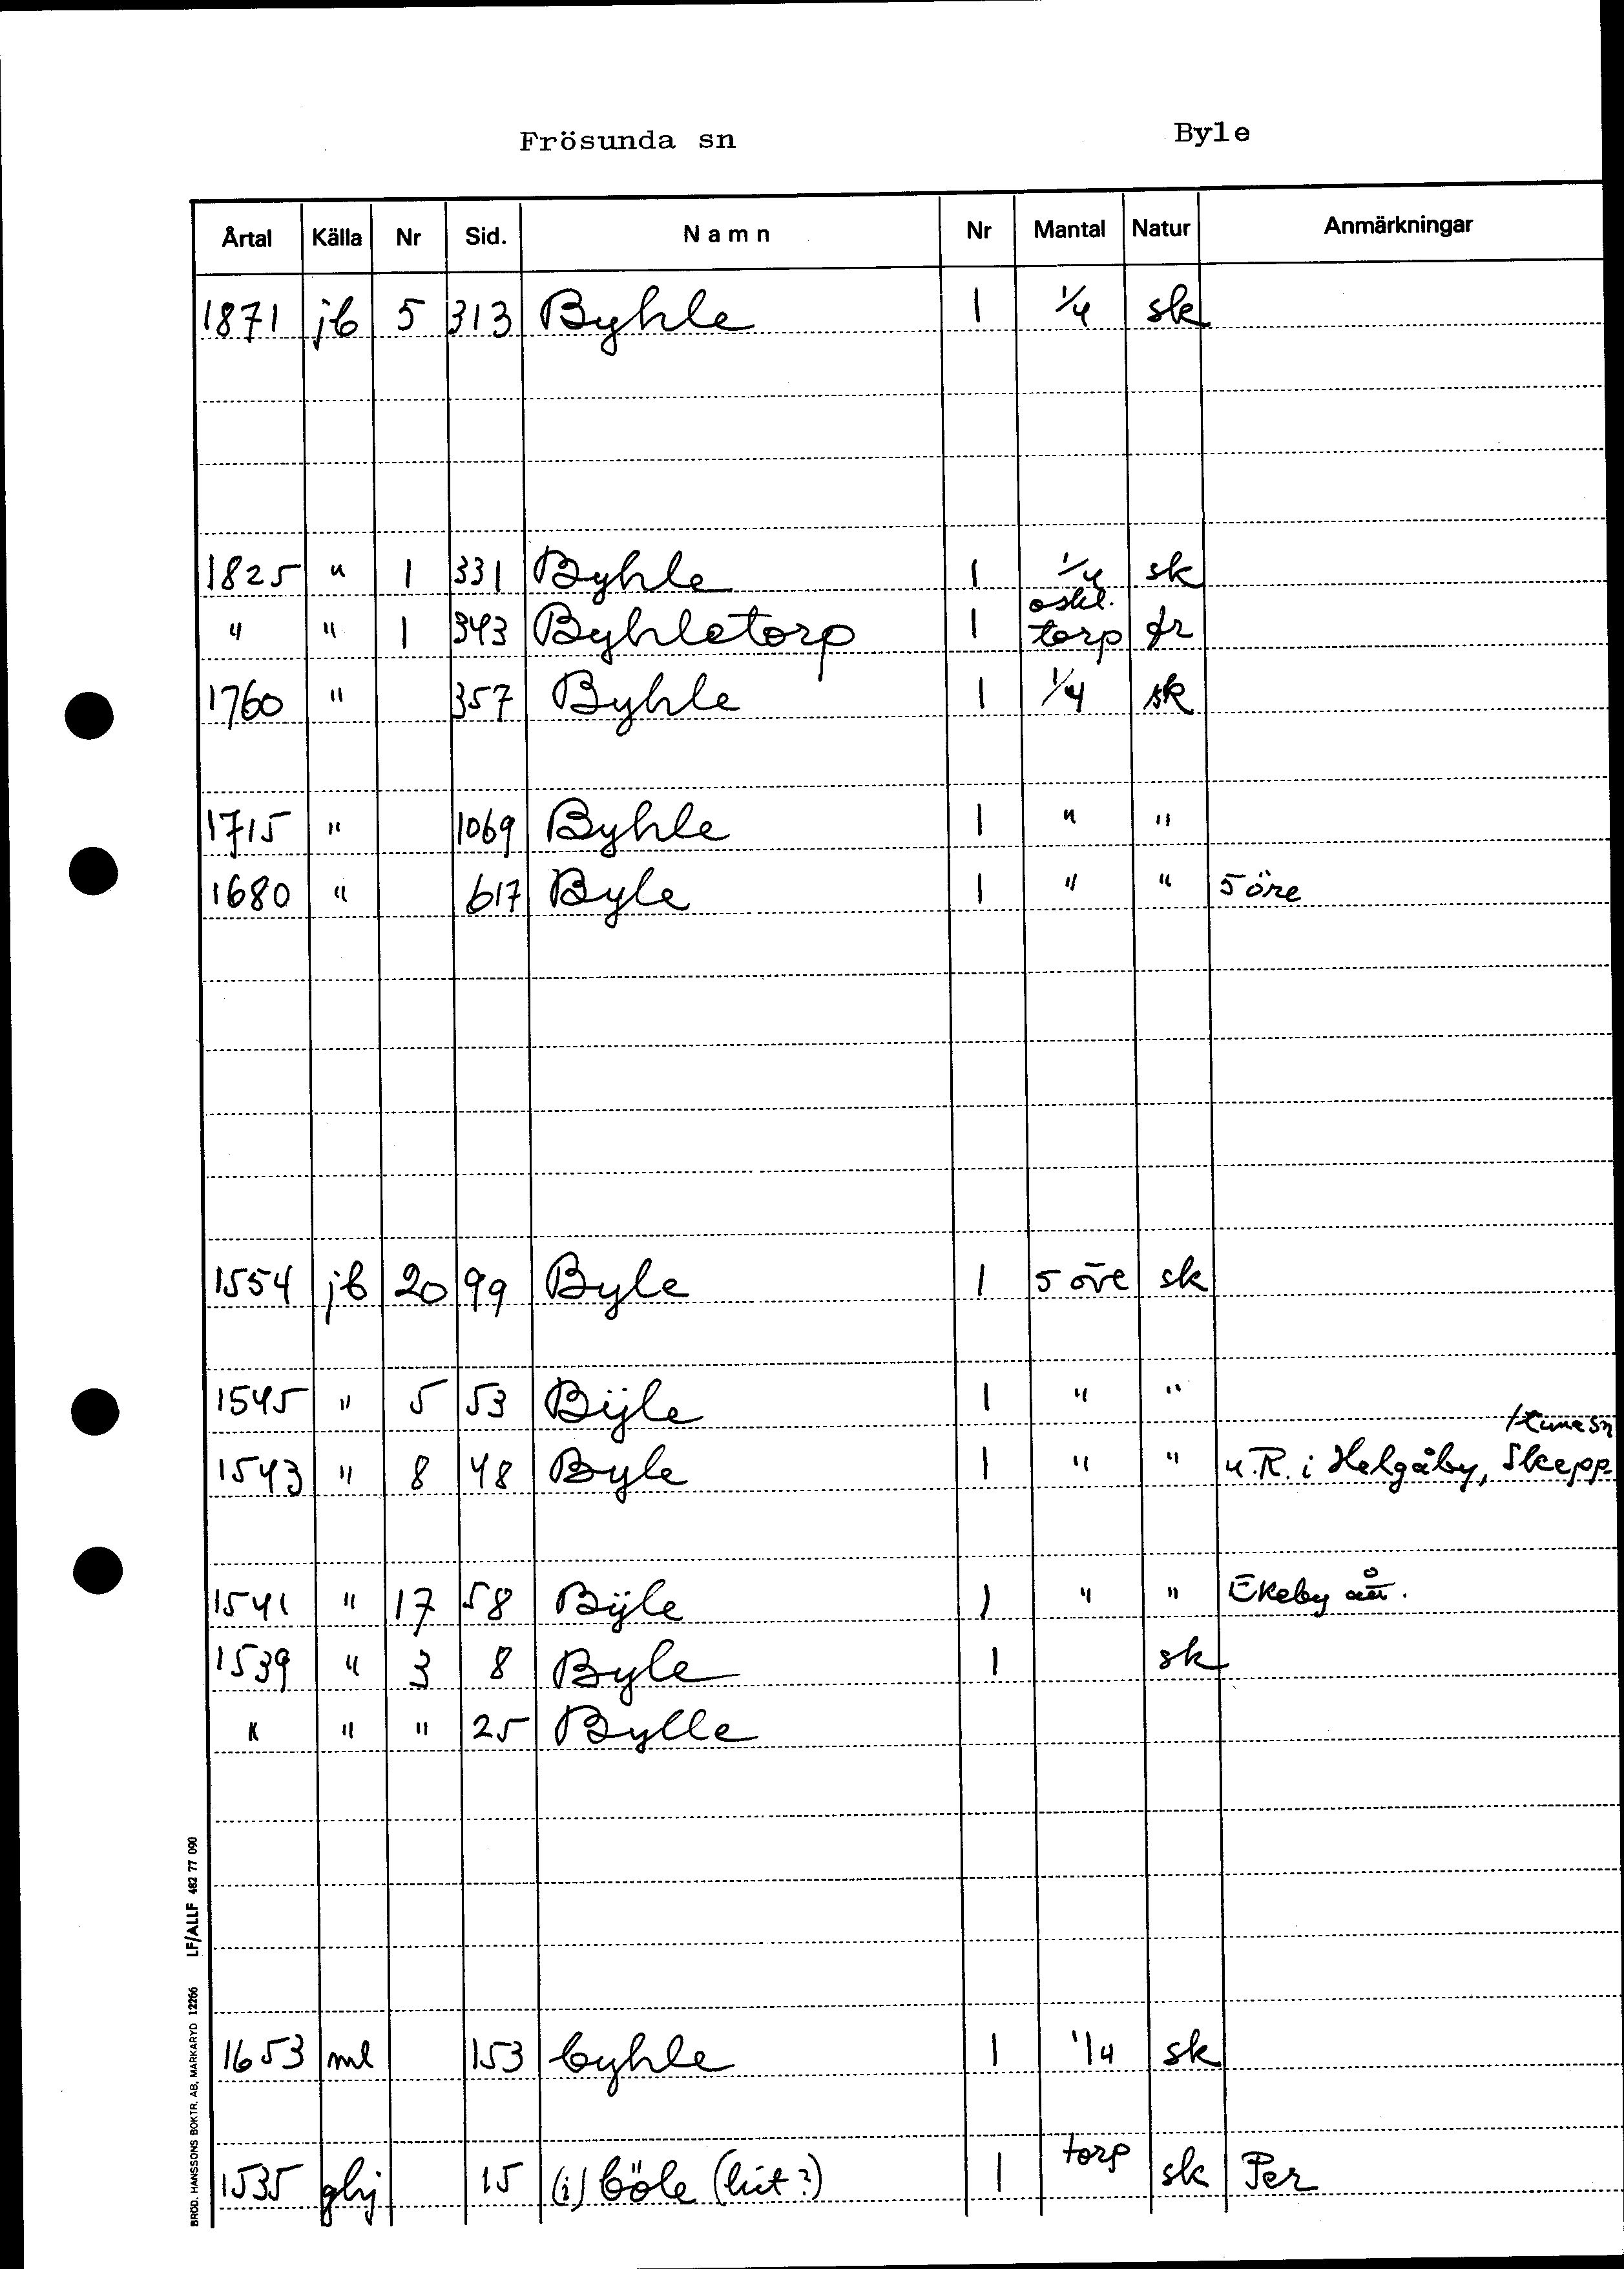 Frösunda sn Byle
Årtal Källa Nr Sid. Namn Nr Mantal Natur Anmärkningar
1871 jb 5 313 Byhle 1 1/4 sk
1825 " 1 331 Byhle 1 1/4 sk
" " 1 343 Byhletorp 1 oskl. torp fr
1760 " 357 Byhle 1 1/4 sk
1715 " 1069 Byhle 1 " "
1680 " 617 Byle 1 " " 5 öre
1554 jb 20 99 Byle 1 5 öre sk
1545 " 5 53 Bÿle 1 " "
/tuna sn
1543 " 8 48 Byle 1 " " u. R. i Helgåby, Skepp-
1541 " 17 58 Bÿle 1 " " Ekeby
1539 " 3 8 Byle 1 sk
" " " 25 Bylle
1653 ml 153 byhle 1 1/4 sk
1535 ghj 15 (i) böle (hit?) 1 torp sk Per
BRÖD. HANSSONS BOKTR. AB, MARKARYD 12266 LF/ALLF 482 77 090